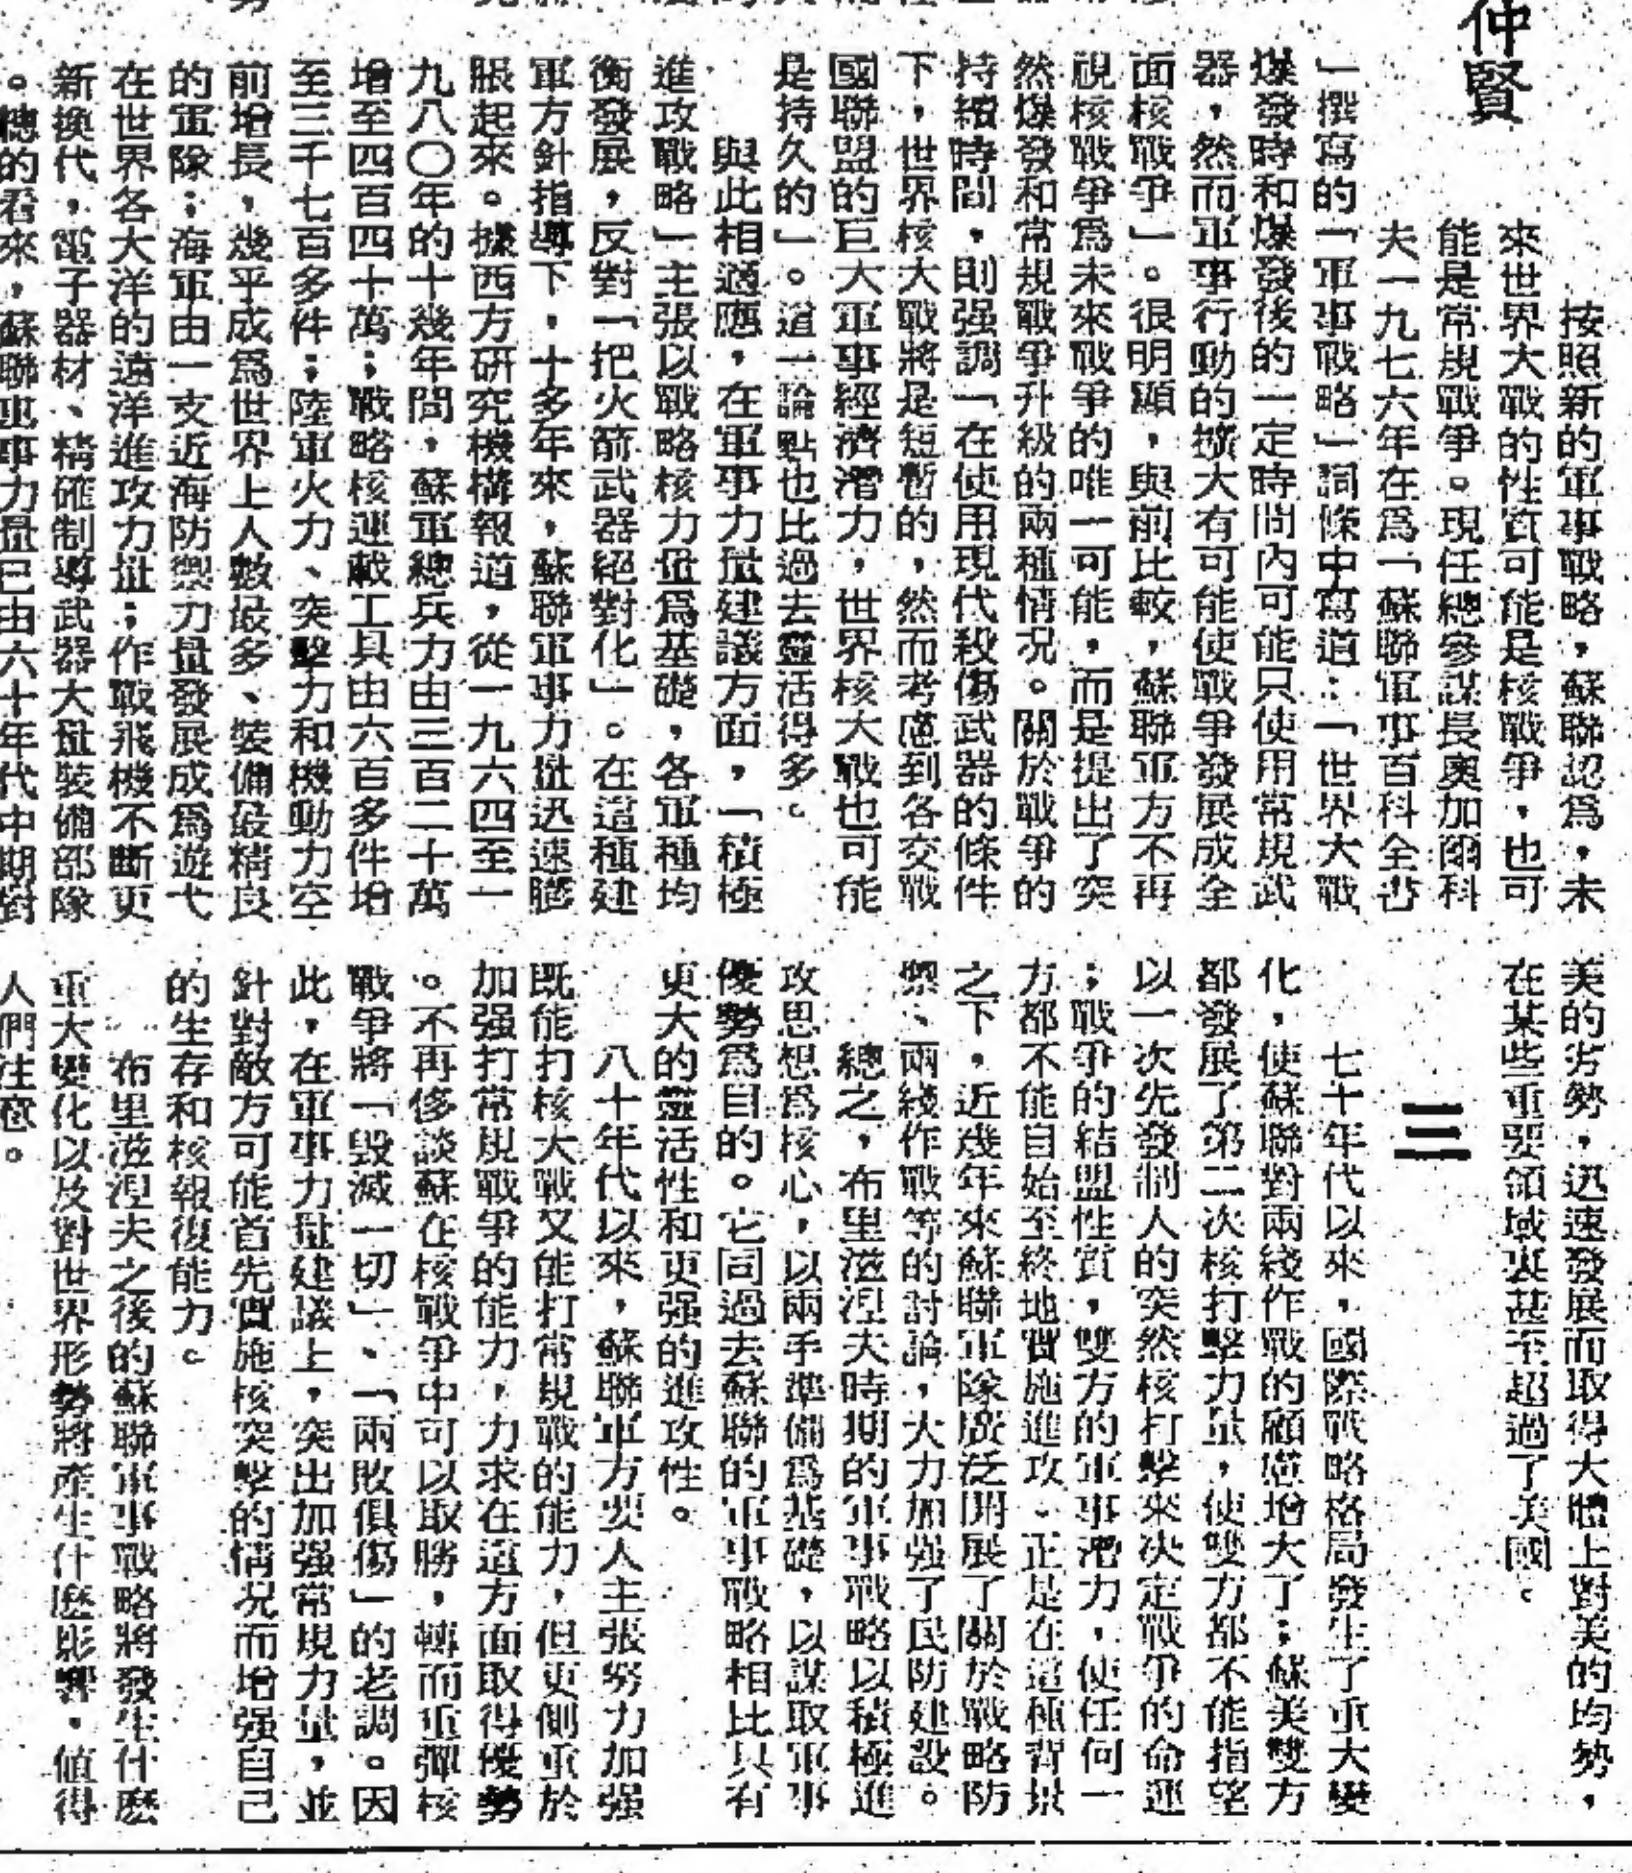 仲賢
按照新的軍事戰略，蘇聯認爲，未
來世界大戰的性質可能是核戰爭，也可
能是常規戰爭。現任總參謀長奧加爾科
夫一九七六年在爲「蘇聯軍事百科全書
」撰寫的「軍事戰略」詞條中寫道：「世界大戰
爆發時和爆發後的一定時間內可能只使用常規武
器，然而軍事行動的擴大有可能使戰爭發展成全
面核戰爭」。很明顯，與前比較，蘇聯軍方不再
視核戰爭爲未來戰爭的唯一可能，而是提出了突
然爆發和常規戰爭升級的兩種情况。關於戰爭的
持續時間，則强調「在使用現代殺傷武器的條件
下，世界核大戰將是短暫的，然而考慮到各交戰
國聯盟的巨大軍事經濟潛力，世界核大戰也可能
是持久的」。這一論點也比過去靈活得多。
與此相適應，在軍事力量建議方面，「積極
進攻戰略」主張以戰略核力量爲基礎，各軍種均
衡發展，反對「把火箭武器絕對化」。在這種建
軍方針指導下，十多年來，蘇聯軍事力量迅速膨
脹起來。據西方研究機構報道，從一九六四至一
九八〇年的十幾年間，蘇軍總兵力由三百二十萬
增至四百四十萬；戰略核運載工具由六百多件增
至三千七百多件；陸軍火力、突擊力和機動力空
前增長，幾乎成爲世界上人數最多、裝備最精良
的軍隊；海軍由一支近海防禦力量發展成爲遊弋
在世界各大洋的遠洋進攻力量；作戰飛機不斷更
新換代，電子器材、精確制導武器大量裝備部隊
。總的看來，蘇聯軍事力量已由六十年代中期對
美的劣勢，迅速發展而取得大體上對美的均勢，
在某些重要領域裏甚至超過了美國。
三
七十年代以來，國際戰略格局發生了重大變
化，使蘇聯對兩綫作戰的顧慮增大了；蘇美雙方
都發展了第二次核打擊力量，使雙方都不能指望
以一次先發制人的突然核打擊來决定戰爭的命運
；戰爭的結盟性質，雙方的軍事潛力，使任何一
方都不能自始至終地實施進攻。正是在這種背景
之下，近幾年來蘇聯軍隊廣泛開展了關於戰略防
禦、兩綫作戰等的討論，大力加强了民防建設。
總之，布里滋涅夫時期的軍事戰略以積極進
攻思想爲核心，以兩手準備爲基礎，以謀取軍事
優勢爲目的。它同過去蘇聯的軍事戰略相比具有
更大的靈活性和更强的進攻性。
八十年代以來，蘇聯軍方要人主張努力加强
既能打核大戰又能打常規戰的能力，但更側重於
加强打常規戰爭的能力，力求在這方面取得優勢
。不再侈談蘇在核戰爭中可以取勝，轉而重彈核
戰爭將「毀滅一切」、「兩敗俱傷」的老調。因
此，在軍事力量建議上，突出加强常規力量，並
針對敵方可能首先實施核突擊的情况而增强自己
的生存和核報復能力。
布里滋涅夫之後的蘇聯軍事戰略將發生什麽
重大變化以及對世界形勢將產生什麽影響，值得
人們注意。